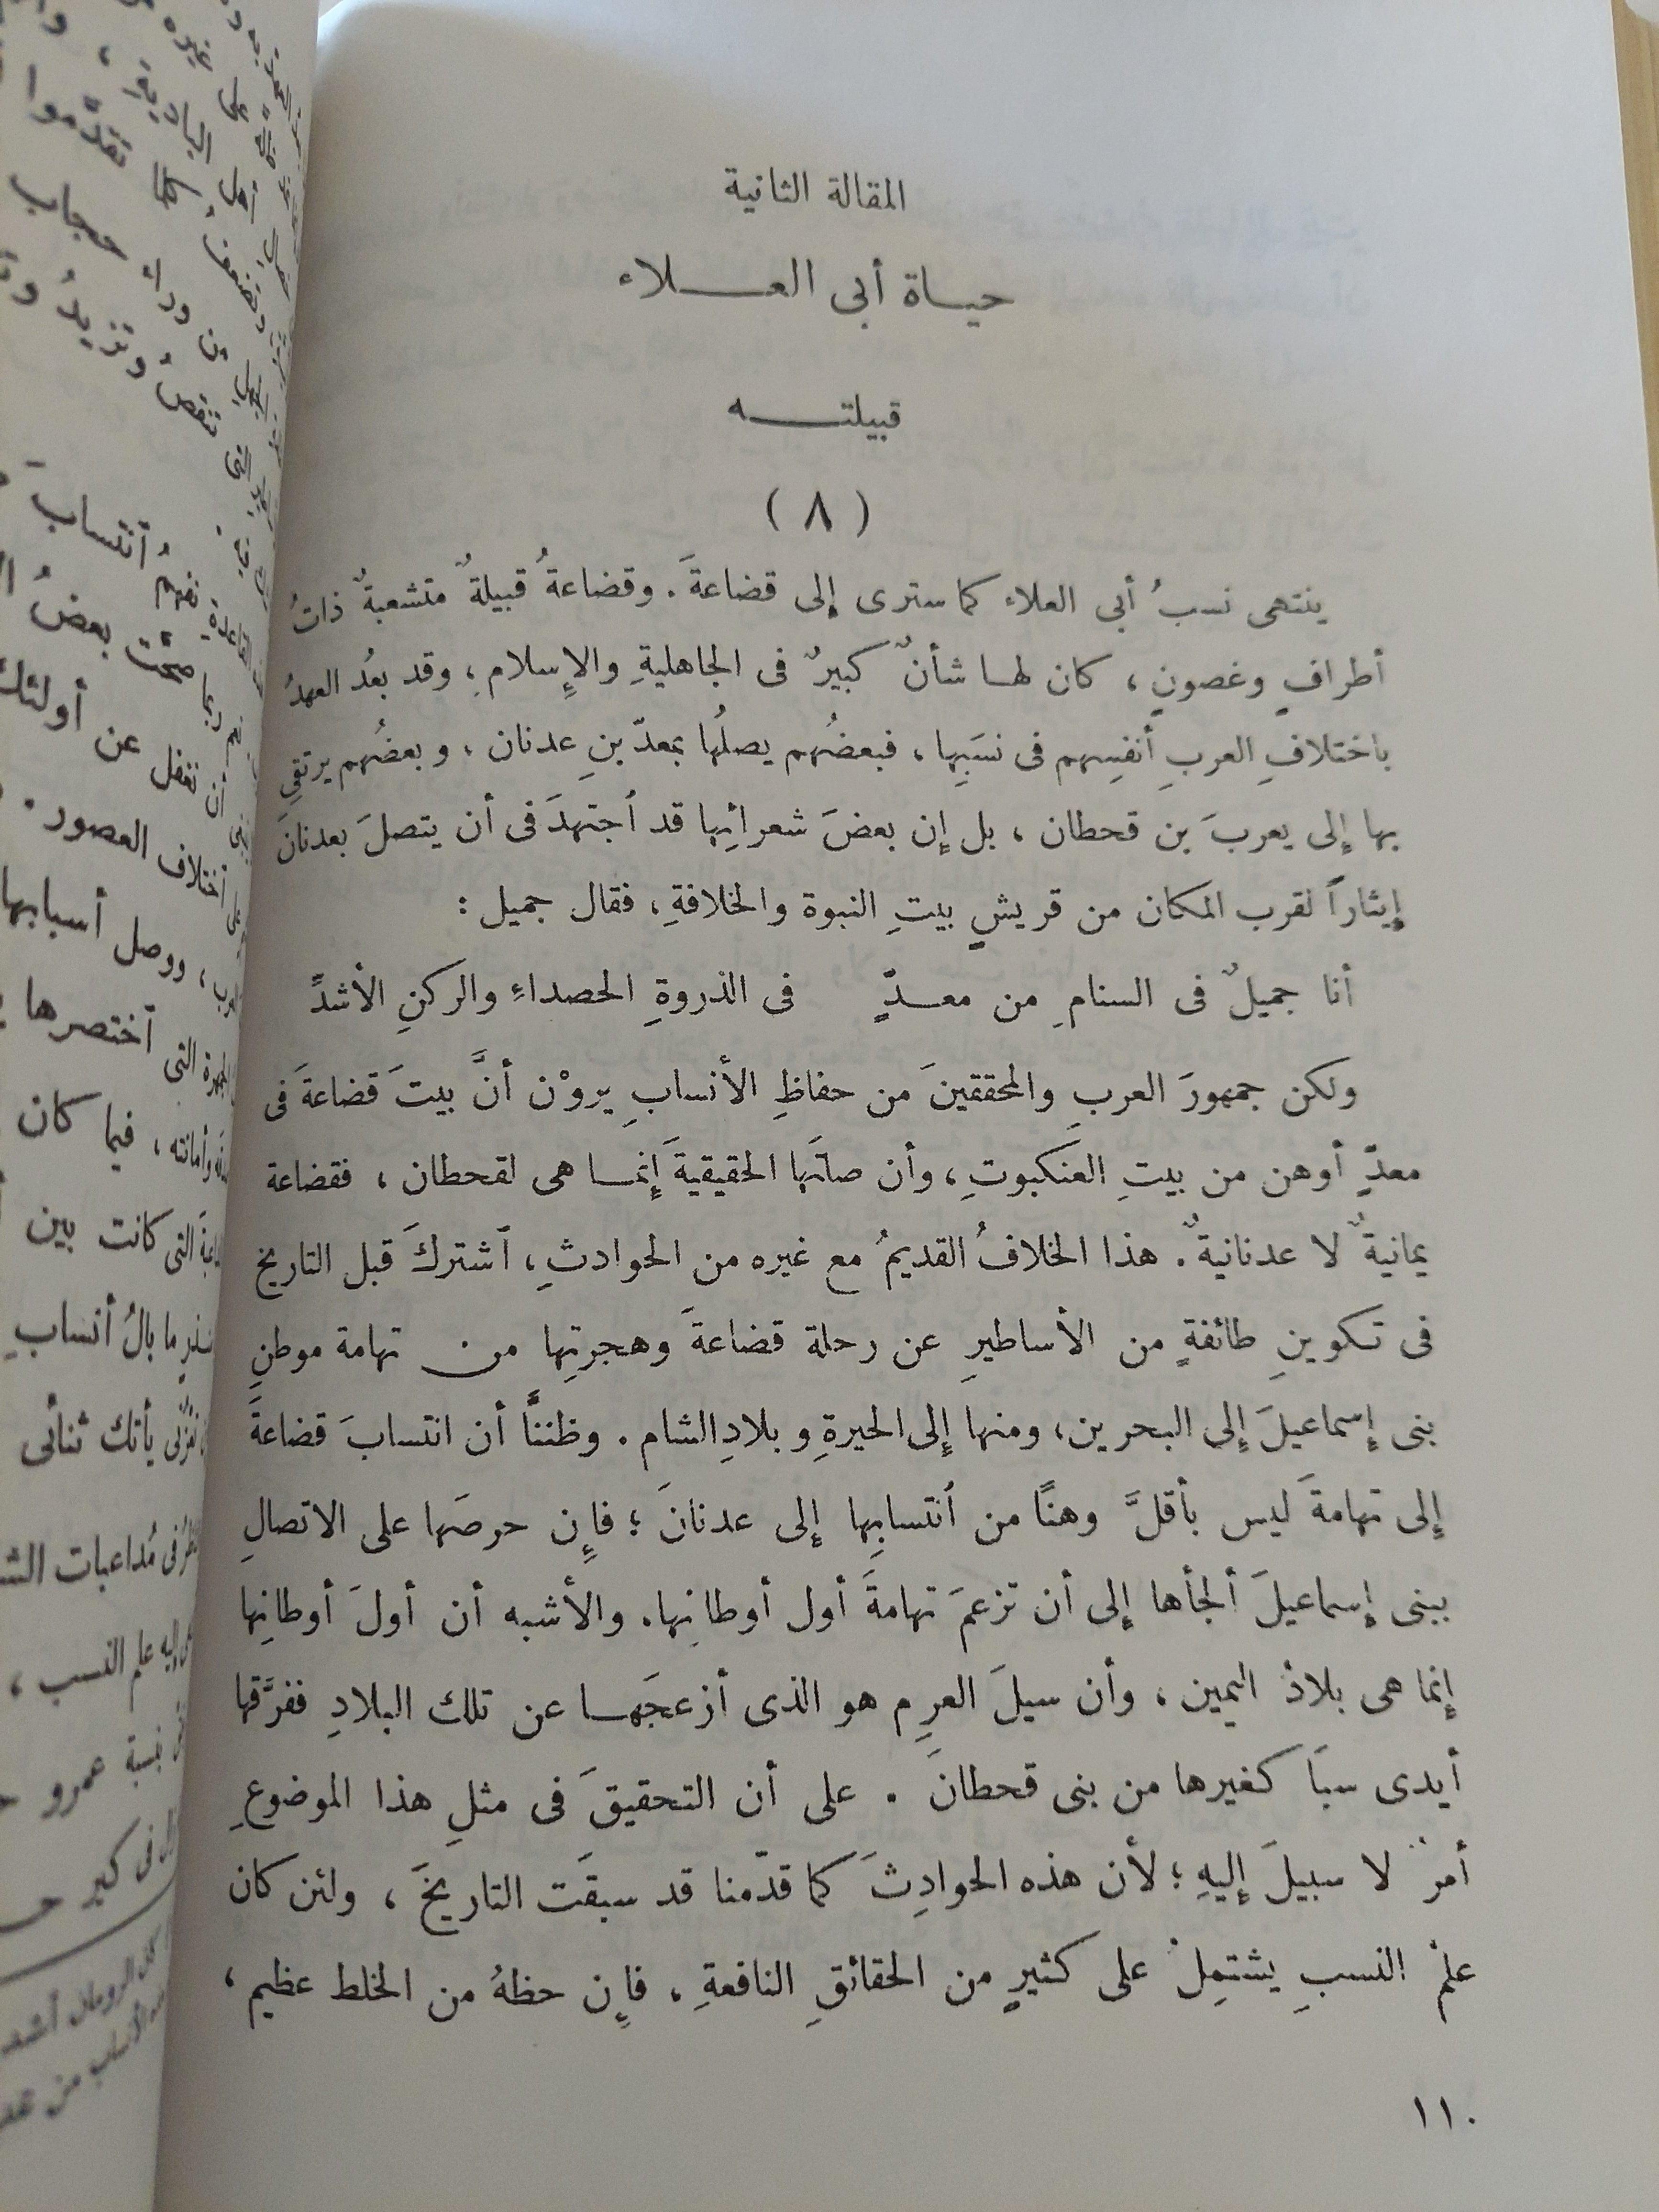 المقالة الثانية
حياة أبى العلاء
قبيلته
( ٨ )
ينتهى نسبُ أبى العلاء كما سترى إلى قضاعةَ . وقضاعةُ قبيلةٌ متشعبةٌ ذاتُ
أطرافٍ وغصونٍ ، كان لها شأنٌ كبيرٌ فى الجاهليةِ والإِسلامِ ، وقد بعُد العهدُ
باختلافِ العربِ أنفسِهم فى نسَبِها ، فبعضُهم يصلُها بمعدّ بنِ عدنان ، وبعضُهم يرتقِى
بها إلى يعربَ بن قحطان ، بل إن بعضَ شعرائِها قد اجتهدَ فى أن يتصلَ بعدنانَ
إيثاراً لقرب المكان من قريشٍ بيتِ النبوة والخلافةِ ، فقال جميل :
أنا جميلٌ فى السنامِ من معدٍّ فى الذروةِ الحصداءِ والركنِ الأشدِّ
ولكن جمهورَ العربِ والمحققينَ من حفاظِ الأنسابِ يروْن أنَّ بيتَ قضاعةَ فى
معدٍّ أوهن من بيتِ العنكبوتِ ، وأن صلتَها الحقيقيةَ إنما هى لقحطان ، فقضاعة
يمانيةٌ لا عدنانيةٌ . هذا الخلافُ القديمُ مع غيره من الحوادثِ ، اشتركَ قبل التاريخ
فى تكوينِ طائفةٍ من الأساطيرِ عن رحلة قضاعةَ وهجرتِها من تهامة موطنِ
بنى إسماعيلَ إلى البحرين ، ومنها إلى الحيرةِ وبلادِ الشام . وظننَّا أن انتسابَ قضاعةَ
إلى تهامةَ ليس بأقلَّ وهنًا من انتسابِها إلى عدنانَ ؛ فإِن حرصَها على الاتصالِ
ببنى إسماعيلَ ألجأها إلى أن تزعمَ تهامةَ أول أوطانِها. والأشبه أن أولَ أوطانِها
إنما هى بلادُ اليمين ، وأن سيلَ العرِم هو الذى أزعجَها عن تلك البلادِ ففرَّقها
أيدى سبَا كغيرها من بنى قحطانَ . على أن التحقيقَ فى مثلِ هذا الموضوعِ
أمرٌ لا سبيلَ إليهِ ؛ لأن هذه الحوادِثَ كما قدّمنا قد سبقَت التاريخَ ، ولئن كان
علمُ النسبِ يشتمِلُ على كثيرٍ من الحقائقِ النافعةِ ، فإِن حظهُ من الخلط عظيم ،
١١٠